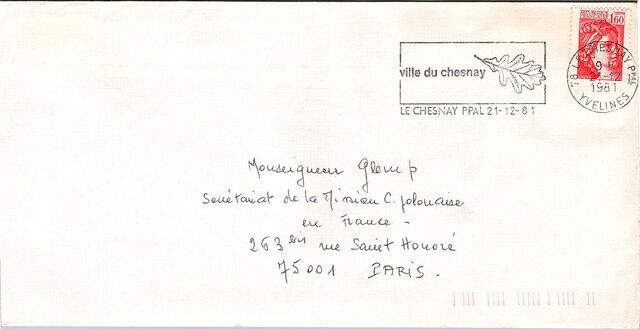 RÉPUBLIQUE FRANÇAISE
1,60
ville du chesnay
LE CHESNAY PPAL 21-12-81
78 LE CHESNAY PPAL
21-12
1981
YVELINES
Monseigneur Glemp
Secrétariat de la Mission C. polonaise
en France -
263 bis rue Saint Honoré
75001 PARIS.